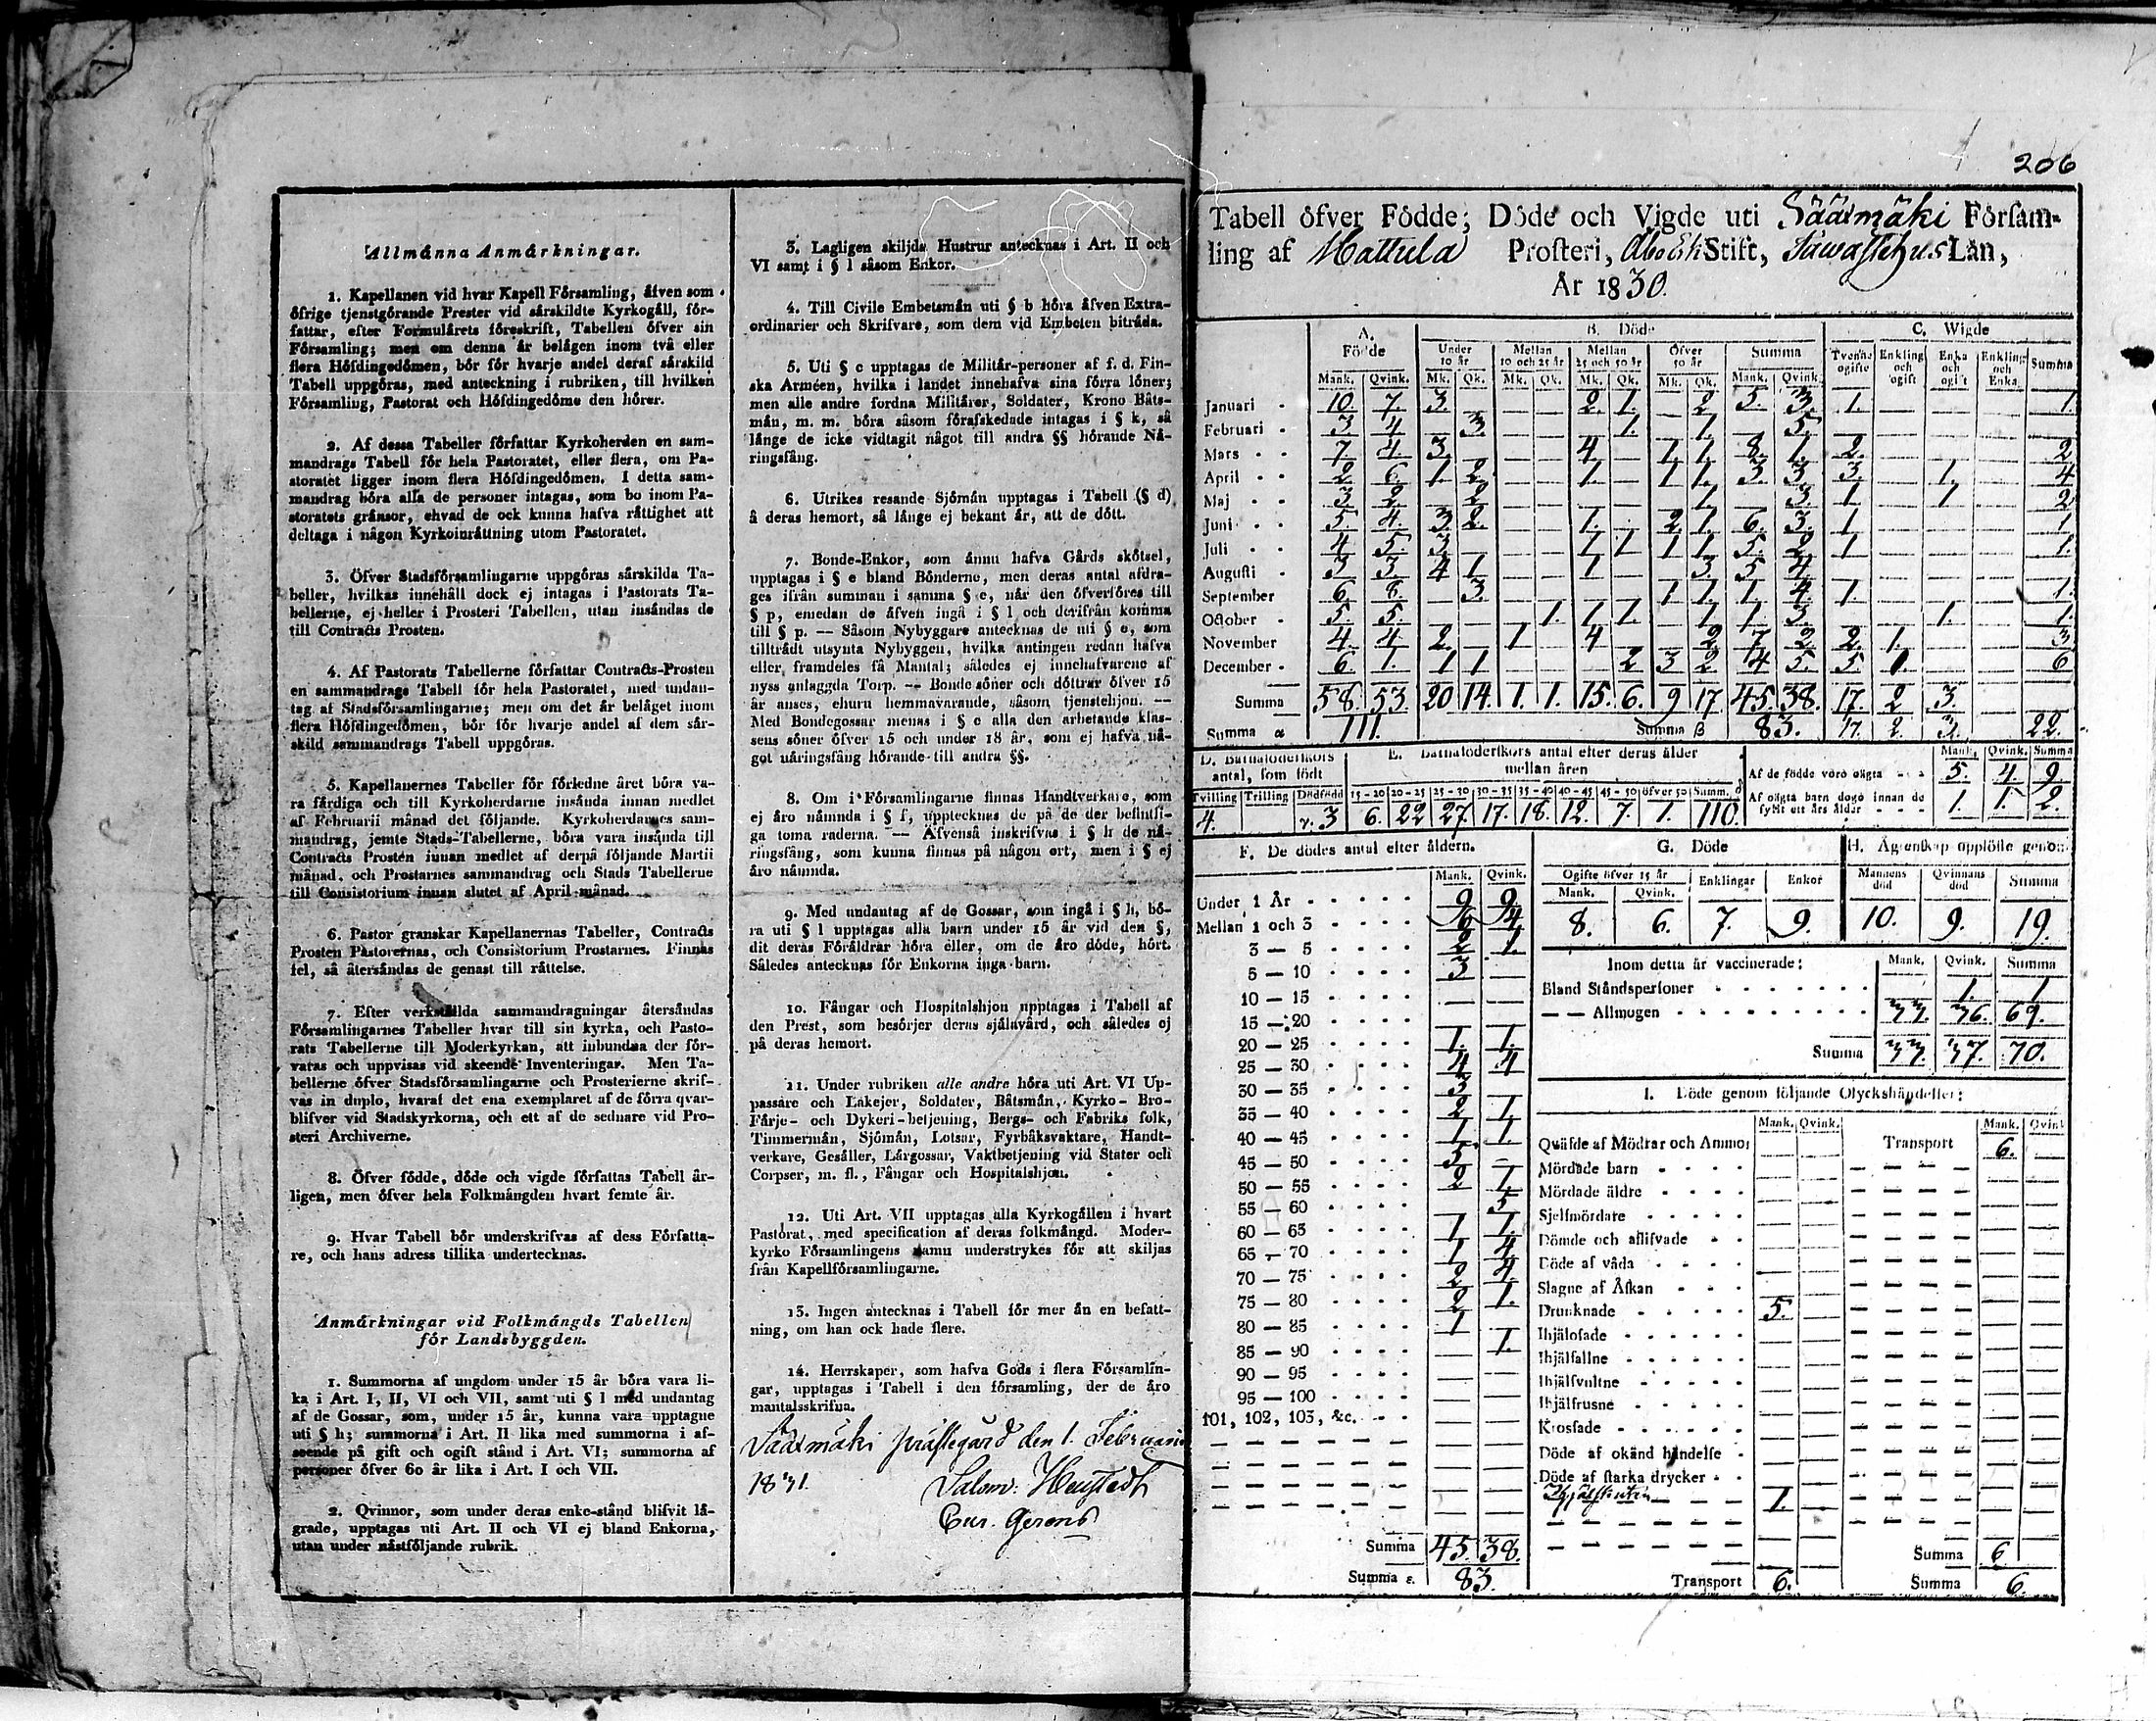 Allmånna Anmårkningar.
1. Kapellanen vid hvar Kapell Församling, åfven som
öfrige tjenstgörande Prester vid sårskildte Kyrkogåll, för-
fattar, efter Formulårets föreskrift, Tabellen öfver sin
Församling; men om denna år belågen inom två eller
flera Höfdingedömen, bör för hvarje andel deraf sårskild
Tabell uppgöras, med anteckning i rubriken, till hvilken
Församling, Pastorat och Höfdingedöme den hörer.
2. Af dessa Tabeller författar Kyrkoherden en sam-
mandrags Tabell för hela Pastoratet, eller flera, om Pa-
storatet ligger inom flera Höfdingedömen. I detta sam-
mandrag böra alla de personer intagas, som bo inom Pa-
storatets grånsor, ehvad de ock kunna hafva råttighet att
deltaga i någon Kyrkoinråttning utom Pastoratet.
3. Öfver Stadsförsamlingarne uppgöras sårskilda Ta-
beller, hvilkas innehåll dock ej intagas i Pastorats Ta-
bellerne, ej heller i Prosteri Tabellen, utan insåndas de
till Contracts Prosten.
4. Af Pastorats Tabellerne författar Contracts-Prosten
en sammandrags Tabell för hela Pastoratet, med undan-
tag af Stadsförsamlingarne; men om det år belåget inom
flera Höfdingedömen, bör för hvarje andel af dem sår-
skild sammandrags Tabell uppgöras.
5. Kapellanernes Tabeller för förledne året böra va-
ra fårdiga och till Kyrkoherdarne insånda innan medlet
af Februarii månad det följande. Kyrkoherdarnes sam-
mandrag, jemte Stads-Tabellerne, böra vara insånda till
Contracts Prosten innan medlet af derpå följande Martii
månad, och Prostarnes sammandrag och Stads Tabellerne
till Consistorium innan slutet af April månad.
6. Pastor granskar Kapellanernas Tabeller, Contracts
Prosten Pastorernas, och Consistorium Prostarnes. Finnas
fel, så återsåndas de genast till råttelse.
7. Efter verkstållda sammandragningar återsåndas
Församlingarnes Tabeller hvar till sin kyrka, och Pasto-
rats Tabellerne till Moderkyrkan, att inbundna der för-
varas och uppvisas vid skeende Inventeringar. Men Ta-
bellerne öfver Stadsförsamlingarne och Prosterierne skrif-
vas in duplo, hvaraf det ena exemplaret af de förra qvar-
blifver vid Stadskyrkorna, och ett af de sednare vid Pro-
steri Archiverne.
8. Öfver födde, döde och vigde författas Tabell år-
ligen, men öfver hela Folkmångden hvart femte år.
9. Hvar Tabell bör underskrifvas af dess Författa-
re, och hans adress tillika undertecknas.
Anmårkningar vid Folkmångds Tabellen
för Landsbyggden.
1. Summorna af ungdom under 15 år böra vara li-
ka i Art. I, II, VI och VII, samt uti § l med undantag
af de Gossar, som, under 15 år, kunna vara upptagne
uti § h; summorna i Art. II lika med summorna i af-
seende på gift och ogift stånd i Art. VI; summorna af
personer öfver 60 år lika i Art. I och VII.
2. Qvinnor, som under deras enke-stånd blifvit lå-
grade, upptagas uti Art. II och VI ej bland Enkorna,
utan under nåstföljande rubrik.
3. Lagligen skiljde Hustrur antecknas i Art. II och
VI samt i § l såsom Enkor.
4. Till Civile Embetsmån uti § b höra åfven Extra-
ordinarier och Skrifvare, som dem vid Embeten bitråda.
5. Uti § c upptagas de Militår-personer af f. d. Fin-
ska Arméen, hvilka i landet innehafva sina förra löner;
men alle andre fordna Militårer, Soldater, Krono Båts-
mån, m. m. böra såsom förafskedade intagas i § k, så
långe de icke vidtagit något till andra §§ hörande Nå-
ringsfång.
6. Utrikes resande Sjömån upptagas i Tabell (§ d)
å deras hemort, så långe ej bekant år, att de dött.
7. Bonde-Enkor, som ånnu hafva Gårds skötsel,
upptagas i § e bland Bönderne, men deras antal afdra-
ges ifrån summan i samma § e, når den öfverföres till
§ p, emedan de åfven ingå i § l och derifrån komma
till § p. — Såsom Nybyggare antecknas de uti § e, som
tilltrådt utsynta Nybyggen, hvilka antingen redan hafva
eller framdeles få Mantal; således ej innehafvarene af
nyss anlaggda Torp. — Bonde söner och döttrar öfver 15
år anses, ehuru hemmavarande, såsom tjenstehjon. —
Med Bondegossar menas i § e alla den arbetande klas-
sens söner öfver 15 och under 18 år, som ej hafva nå-
got nåringsfång hörande till andra §§.
8. Om i Församlingarne finnas Handtverkare, som
ej åro nåmnda i § f, upptecknas de på de der befintli-
ga toma raderna. — Åfvenså inskrifvas i § h de nå-
ringsfång, som kunna finnas på någon ort, men i § ej
åro nåmnda.
9. Med undantag af de Gossar, som ingå i § h, bö-
ra uti § l upptagas alla barn under 15 år vid den §,
dit deras Föråldrar höra eller, om de åro döde, hört.
Således antecknas för Enkorna inga barn.
10. Fångar och Hospitalshjon upptagas i Tabell af
den Prest, som besörjer deras sjålavård, och således ej
på deras hemort.
11. Under rubriken alle andre höra uti Art. VI Up-
passare och Lakejer, Soldater, Båtsmån, Kyrko- Bro-
Fårje- och Dykeri-betjening, Bergs- och Fabriks folk,
Timmermån, Sjömån, Lotsar, Fyrbåksvaktare, Handt-
verkare, Gesåller, Lårgossar, Vaktbetjening vid Stater och
Corpser, m. fl., Fångar och Hospitalshjon.
12. Uti Art. VII upptagas alla Kyrkogållen i hvart
Pastorat, med specification af deras folkmångd. Moder-
kyrko Församlingens namn understrykes för att skiljas
från Kapellförsamlingarne.
13. Ingen antecknas i Tabell för mer ån en befatt-
ning, om han ock hade flere.
14. Herrskaper, som hafva Gods i flera Församlin-
gar, upptagas i Tabell i den församling, der de åro
mantalsskrifna.
Sääxmäki prästegård den 1. Februarii
1831.
206
Tabell öfver Födde, Döde och Vigde uti Sääxmäki Församling
ling af Mattula Prosteri, Åbo Erk Stift, Tawastehus Län,
År 1830.
A. Födde B. Döde C. Wigde
Under 10 år Mellan 10 och 25 år Mellan 25 och 50 år Öfver 50 år Summa Tvenne ogifte Enkling och ogift Enka och ogift Enkling och Enka Summa
Mank. Qvink. Mk. Qk. Mk. Qk. Mk. Qk. Mk. Qk. Mank. Qvink.
Januari 10. 7. 3. — — — 2. 1. — 2. 5. 3. 1. — — — 1.
Februari 3 4 — 3. — — — 1. — 1. — 5. — — — —
Mars 7 4 3. — — — 4 — 1 1. 8. 1. 2. — — — 2
April 2 6. 1 2. — — 1. — 1 1. 3 3 3. — 1. — 4
Maj 3 2 — 2 — — — — — 1. — 3. 1 — 1 — 2
Juni 5. 4. 3 2. — — 1. — 2 1. 6. 3. 1 — — — 1
Juli 4 5. 3 — — — 1 1 1 1 5. 2 1 — — — 1.
Augusti 3 3 4 1 — — 1 — — 3 5 4 — — — —
September 6 8. — 3. — — — — 1 1. 1. 4. 1 — — — 1.
October 5. 5. — — — 1. 1. 1. — 1 1 3. — — 1. — 1.
November 4 4 2. — 1 — 4 — — 2 7 2 2. 1. — — 3
December 6 1. 1 1 — — — 2 3 2 4 5. 5. 1. — — 6
Summa 58. 53. 20 14. 1. 1. 15. 6. 9 17 45. 38. 17. 2 3.
Summa α 111. Summa β 83. 17. 2. 3. 22.
D. Barnaföderskors antal, som födt
Tvilling Trilling Dödfödd
4. 3
E. Barnaföderskors antal efter deras ålder mellan åren
15-20 20-25 25-30 30-35 35-40 40-45 45-50 öfver 50 Summ.
6. 22 27. 17. 18. 12. 7. 1. 110.
Mank. Qvink. Summa
Af de födde voro oägta 5. 4. 9.
Af oägta barn dogo innan de fyllt ett års ålder 1. 1. 2.
F. De dödes antal efter åldern.
Mank. Qvink.
Under 1 År 9 9
Mellan 1 och 3 6 4
3 — 5 2 1.
5 — 10 3 —
10 — 15 — —
15 — 20 — —
20 — 25 1. 1.
25 — 30 4 4
30 — 35 3 —
35 — 40 2 1.
40 — 45 1 1.
45 — 50 5. —
50 — 55 2 1.
55 — 60 — 5
60 — 65 1 1.
65 — 70 1 4
70 — 75 2 4.
75 — 80 2 1.
80 — 85 1 —
85 — 90 — 1.
90 — 95 — —
95 — 100 — —
101, 102, 103, &c.
Summa 45. 38.
Summa ε. 83.
G. Döde
Ogifte öfver 15 år Enklingar Enkor
Mank. Qvink.
8. 6. 7. 9.
H. Ägtenskap upplöste genom
Mannens död Qvinnans död Summa
10. 9. 19.
Inom detta år vaccinerade: Mank. Qvink. Summa
Bland Ståndspersoner — 1. 1
— — Allmogen 33. 36. 69.
Summa 33. 37. 70.
I. Döde genom följande Olyckshändelser:
Mank. Qvink. Mank. Qvink
Qväfde af Mödrar och Ammor Transport 6.
Mördade barn
Mördade äldre
Sjelfmördare
Dömde och aflifvade
Döde af våda
Slagne af Åskan
Drunknade 5.
Ihjälosade
Ihjälfallne
Ihjälsvultne
Ihjälfrusne
Krossade
Döde af okänd händelse
Döde af starka drycker
Ihjälskuten 1.
Summa 6
Transport 6. Summa 6.